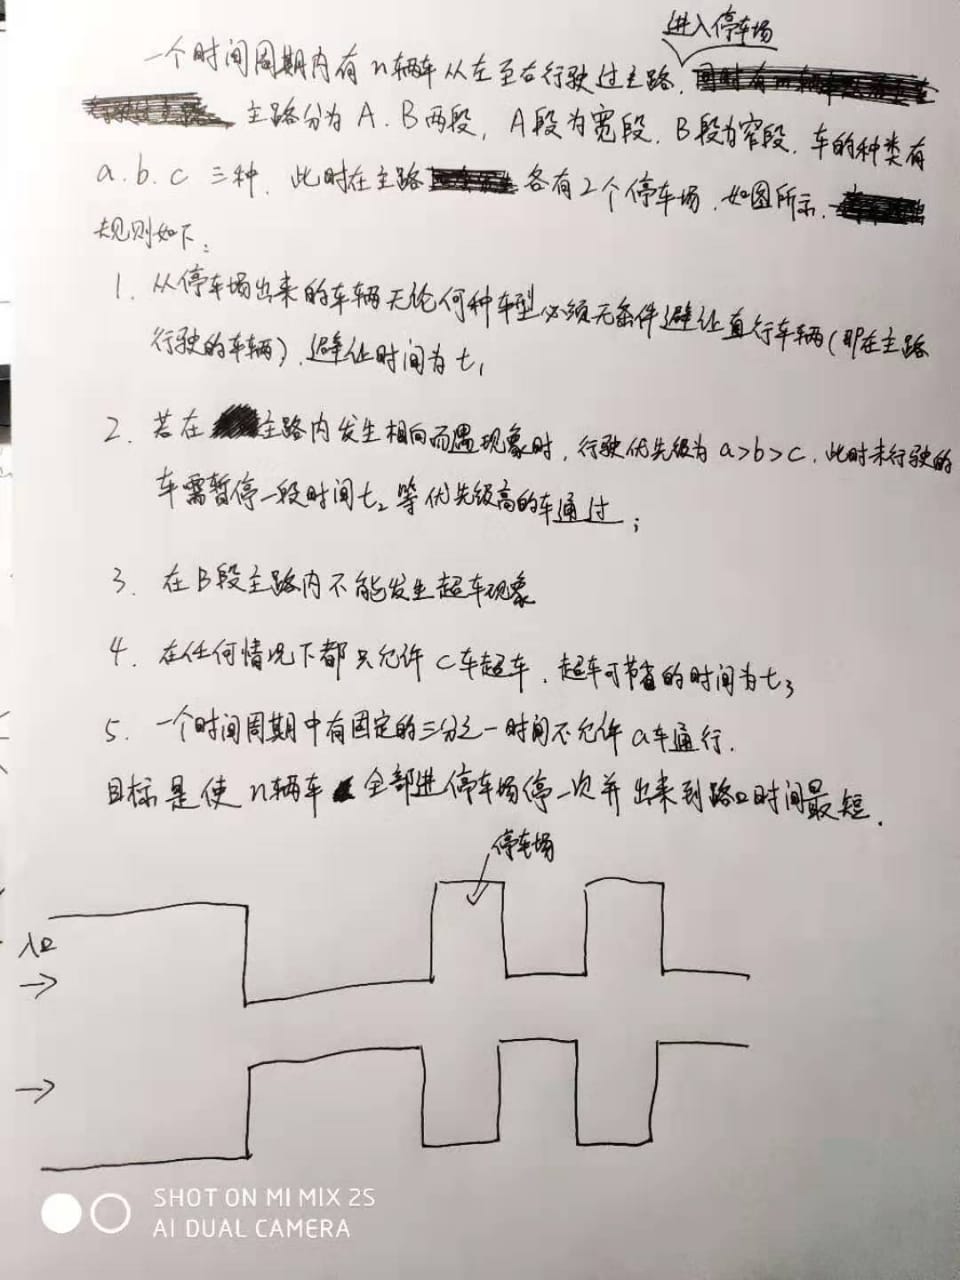 进入停车场
一个时间周期内有n辆车从左至右行驶过主路,
主路分为A.B两段,A段为宽段.B段为窄段.车的种类有
a.b.c 三种.此时在主路各有2个停车场.如图所示.
规则如下:
1. 从停车场出来的车辆无论何种车型必须无条件避让直行车辆(即在主路
行驶的车辆).避让时间为t₁
2. 若在主路内发生相向而遇现象时,行驶优先级为a>b>c.此时未行驶的
车需暂停一段时间t₂等优先级高的车通过;
3. 在B段主路内不能发生超车现象
4. 在任何情况下都只允许c车超车.超车可节省的时间为t₃
5. 一个时间周期中有固定的三分之一时间不允许a车通行.
目标是使n辆车全部进停车场停一次并出来到路口时间最短.
停车场
入口
SHOT ON MI MIX 2S
AI DUAL CAMERA